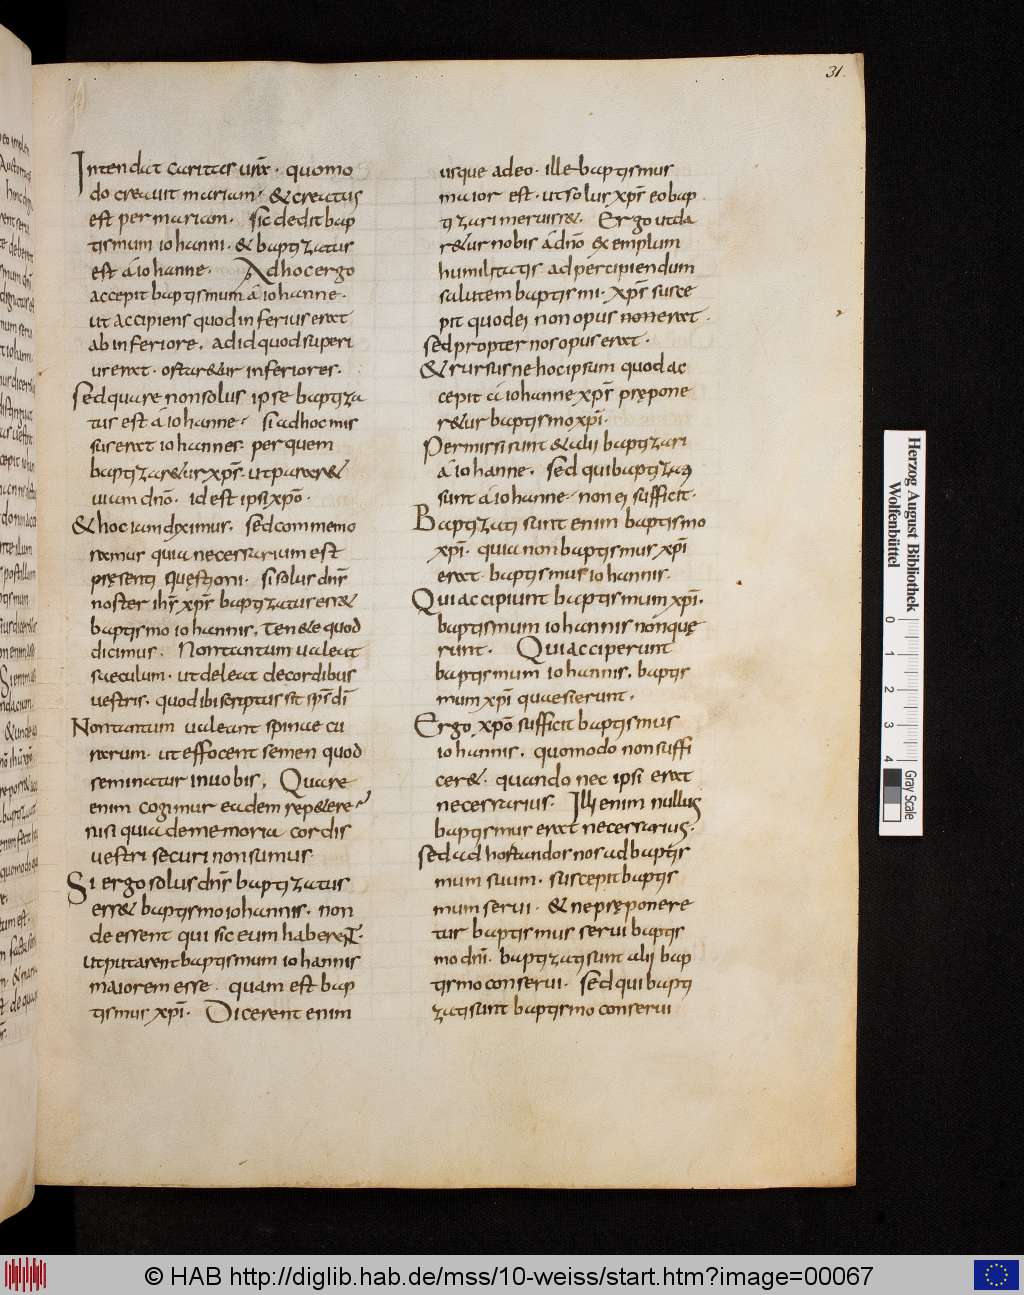 31.
Intendat caritas urx̄a. quomo
do creauit mariam. & creatus
est per mariam. sic dedit bap
tismum iohanni. & baptizatus
est a iohanne. Ad hoc ergo
accepit baptismum a iohanne.
ut accipiens quod inferius erat
ab inferiore. ad id quod superi
us erat. ostar&ur inferiores.
Sed quare non solus ipse baptiza
tus est a iohanne. si ad hoc mis
sus erat iohannes. per quem
baptizar&ur xp̄s. ut parar&
uiam dn̄o. id est ipsi xp̄o.
& hoc iam diximus. sed commemo
ramus quia necessarium est
pręsenti quęstioni. si solus dn̄s
noster ih̄s xp̄s baptizatus ess&
baptismo iohannis. ten&e quod
dicimus. Non tantum ualeat
saeculum. ut deleat de cordibus
uestris. quod ibi scriptus sit sp̄s dī
Non tantum ualeant spinae cu
rarum. ut effocent semen quod
seminatur in uobis. Quare
enim cogimur eadem rep&ere
nisi quia de memoria cordis
uestri securi non sumus.
Si ergo solus dn̄s baptizatus
ess& baptismo iohannis. non
deessent qui sic eum haberent.
ut putarent baptismum iohannis
maiorem esse. quam est bap
tismus xp̄i. Dicerent enim
usque adeo. ille baptismus
maior est. ut solus xp̄s eo bap
tizari meruiss&. Ergo ut da
r&ur nobis a dn̄o exemplum
humilitatis ad percipiendum
salutem baptismi. xp̄s susce
pit quod ei non opus non erat.
sed propter nos opus erat.
& rursus ne hoc ipsum quod ac
cepit a iohanne xp̄s prępone
r&ur baptismo xp̄i.
Permissi sunt & alii baptizari
a iohanne. sed qui baptizati
sunt a iohanne. non ei sufficit.
Baptizati sunt enim baptismo
xp̄i. quia non baptismus xp̄i
erat. baptismus iohannis.
Qui accipiunt baptismum xp̄i.
baptismum iohannis non quę
runt. Qui acciperunt
baptismum iohannis. baptis
mum xp̄i quaesierunt.
Ergo xp̄o sufficit baptismus
iohannis. quomodo non suffi
cer&. quando nec ipsi erat
necessarius. Illi enim nullus
baptismus erat necessarius.
sed ad hortandos nos ad baptis
mum suum. suscepit baptis
mum serui. & ne pręponere
tur baptismus serui baptis
mo dn̄i. baptizati sunt alii bap
tismo conserui. Sed qui bapti
zati sunt baptismo conserui
Herzog August Bibliothek
Wolfenbüttel
0 1 2 3 4 Gray Scale
© HAB http://diglib.hab.de/mss/10-weiss/start.htm?image=00067